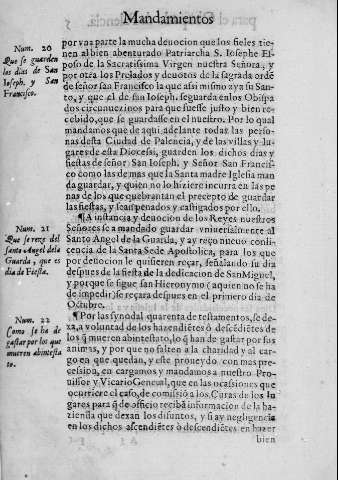 Mandamientos
Num. 20
Que se guarden
los dias de San
Ioseph, y San
Francisco.
por vna parte la mucha deuocion que los fieles tie-
nen al bien abenturado Patriarcha S. Iosephe Es-
poso de la Sacratissima Virgen nuestra Señora, y
por otra los Prelados y deuotos de la sagrada ordē
de señor san Francisco la que assi mismo aya su San-
to, y que el de san Ioseph, seguarda enlos Obispa
dos circunuezinos para que fuesse justo y bien re-
cebido, que se guardasse en el nuestro. Por lo qual
mandamos que de aqui adelante todas las perso-
nas desta Ciudad de Palencia, y de las villas y lu-
gares de esta Diocessi, guarden los dichos dias y
fiestas de señor San Ioseph, y Señor San Francis-
co como las de mas que la Santa madre Iglesia man
da guardar, y quien no lo hiziere incurra en las pe
nas de los que quebrantan el precepto de guardar
las fiestas, y sean penados y castigados por ello.
Num. 21
Que se reze del
santo Angel de la
Guarda, y que es
dia de Fiesta.
¶A instancia y deuocion de los Reyes nuestros
Señores se a mandado guardar vniuersalmente al
Santo Angel de la Guarda, y ay reço nueuo con li-
cencia de la Santa Sede Apostolica, para los que
por deuocion le quisieren reçar, señalando su dia
despues de la fiesta de la dedicacion de San Miguel,
y porque se sigue san Hieronymo (aquien no se ha
de impedir) se reçara despues en el primero dia de
Octubre.
Num. 22
Como se ha de
gastar por los que
mueren abintesta
to.
¶Por las synodal quarenta de testamentos, se de-
xa, a voluntad de los hazendiētes ò descēdiētes de
los q̄ mueren abintestato, lo q̄ han de gastar por sus
animas, y por que no falten a la charidad y al car-
go en que quedan, y este proneydo con mas pre-
cession, en cargamos y mandamos a nuestro Pro-
uissor y Vicario General, que en las ocassiones que
ocurriere el caso, de comissiō a los Curas de los lu
gares para q̄ de officio recibā informacion de la ha-
zienda que dexan los difuntos, y si ay negligencia
en los dichos ascendiētes ò descendiētes en hazer
bien